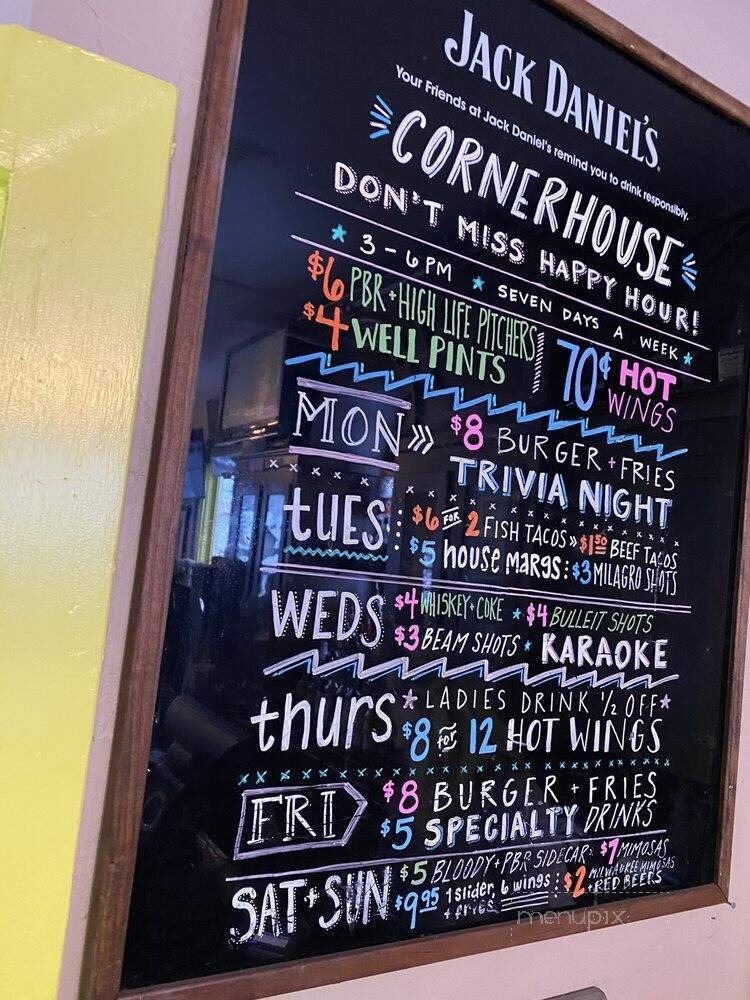 JACK DANIEL'S
Your Friends at Jack Daniel's remind you to drink responsibly.
CORNERHOUSE
DON'T MISS HAPPY HOUR!
3-6PM ★ SEVEN DAYS A WEEK ★
$6 PBR + HIGH LIFE PITCHERS
$4 WELL PINTS
70¢ HOT WINGS
MON >> $8 BURGER + FRIES
TRIVIA NIGHT
TUES: $6 FOR 2 FISH TACOS >> $1.50 BEEF TACOS
$5 house margs: $3 MILAGRO SHOTS
WEDS $4 WHISKEY + COKE ★ $4 BULLEIT SHOTS
$3 BEAM SHOTS ★ KARAOKE
thurs ★ LADIES DRINK 1/2 OFF ★
$8 for 12 HOT WINGS
FRI $8 BURGER + FRIES
$5 SPECIALTY DRINKS
SAT + SUN $5 BLOODY + PBR SIDECAR: $7 MIMOSAS
$9.95 1 slider, 6 wings + fries : $2 MILWAUKEE MIMOSAS + RED BEERS
menupix